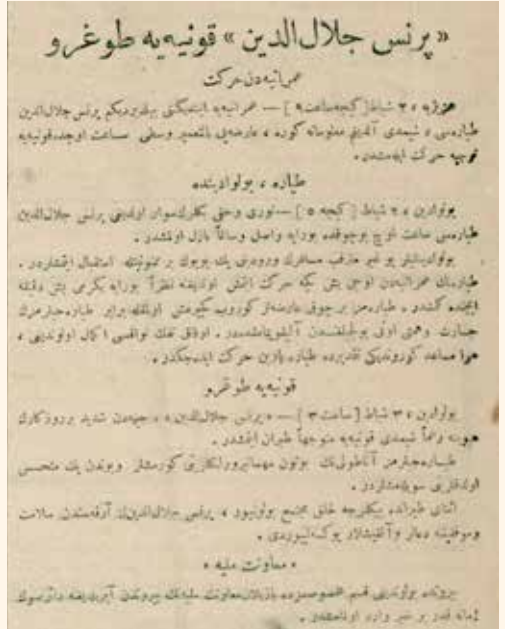 « پرنس جلال‌الدین » قونیه‌یه طوغرو
عمرانیه‌دن حرکت
عزیزیه ، ٣ شباط [ کیجه ساعت ٩ ] — عمرانیه‌یه ایندیکنی بیلدیردیکم پرنس جلال‌الدین
طیاره‌سی ، شیمدی آلدیغم معلوماته کوره ، عارضه‌یی بالتعمیر وسطی ساعت اوچده قونیه‌یه
توجیه حرکت ایتمشدر .
طیاره ، بولوادینده
بولوادین ، ٢ شباط [ کیجه ٥ ] — نوری وحقی بکلرك سوار اولدیغی پرنس جلال‌الدین
طیاره‌سی ساعت اوچ بوچوقده بورایه واصل وسالماً نازل اولمشدر .
بولوادینلیلر بو غیر مترقب مسافرك ورودینی پك بویوك بر ممنونیتله استقبال ایتمشلردر .
طیاره‌نك عمرانیه‌دن اوچی بش کچه حرکت ایتمش اولدیغنه نظراً بورایه یکرمی بش دقیقه
ایچنده کلمشدر . طیاره‌مز بر چوق عارضه‌لر کوروب کچیرمش اولمقله برابر طیاره‌جیلرمزك
جسارت وهمتی اونی یولندن آلیقویمامشدر . اوفاق تفك نواقصی اکمال اولوندیغی ،
هوا مساعد کوروندیکی تقدیرده طیاره یارین حرکت ایده‌جکدر .
قونیه‌یه طوغرو
بولوادین ، ٣ شباط [ ساعت ٣ ] — « پرنس جلال‌الدین » ، جبهه‌دن شدید بر روزکارك
هبوبنه رغماً شیمدی قونیه‌یه متوجهاً طیران ایتمشدر .
طیاره‌جیلرمز آناطولینك بوتون مهمانپرورلکلرینی کورمشلر وبوندن پك متحسس
اولدقلرینی سویله‌مشلردر .
اثنای طیرانده بیکلرجه خلق مجتمع بولونیور ، پرنس جلال‌الدینك آرقه‌سندن سلامت
وموفقیتنه دعالر وآلقیشلار یوکسه‌لیوردی .
« معاونت ملیه »
بیروتده بولوندیغی قسم مخصوصمزده یازیلان معاونت ملیه‌نك بیروتدن آیریلدیغنه دائر سوك
زمانه قدر بر خبر وارد اولمامشدر .